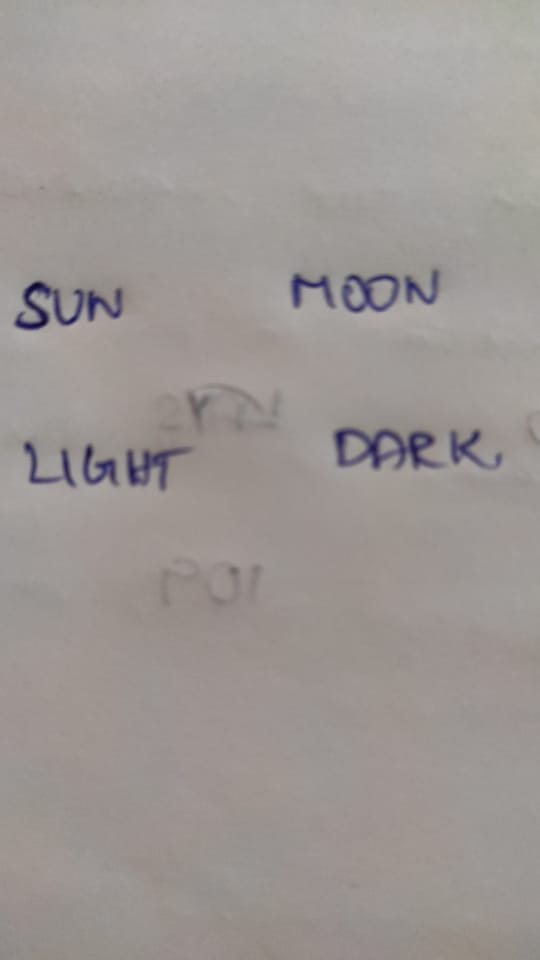 SUN MOON
LIGHT DARK